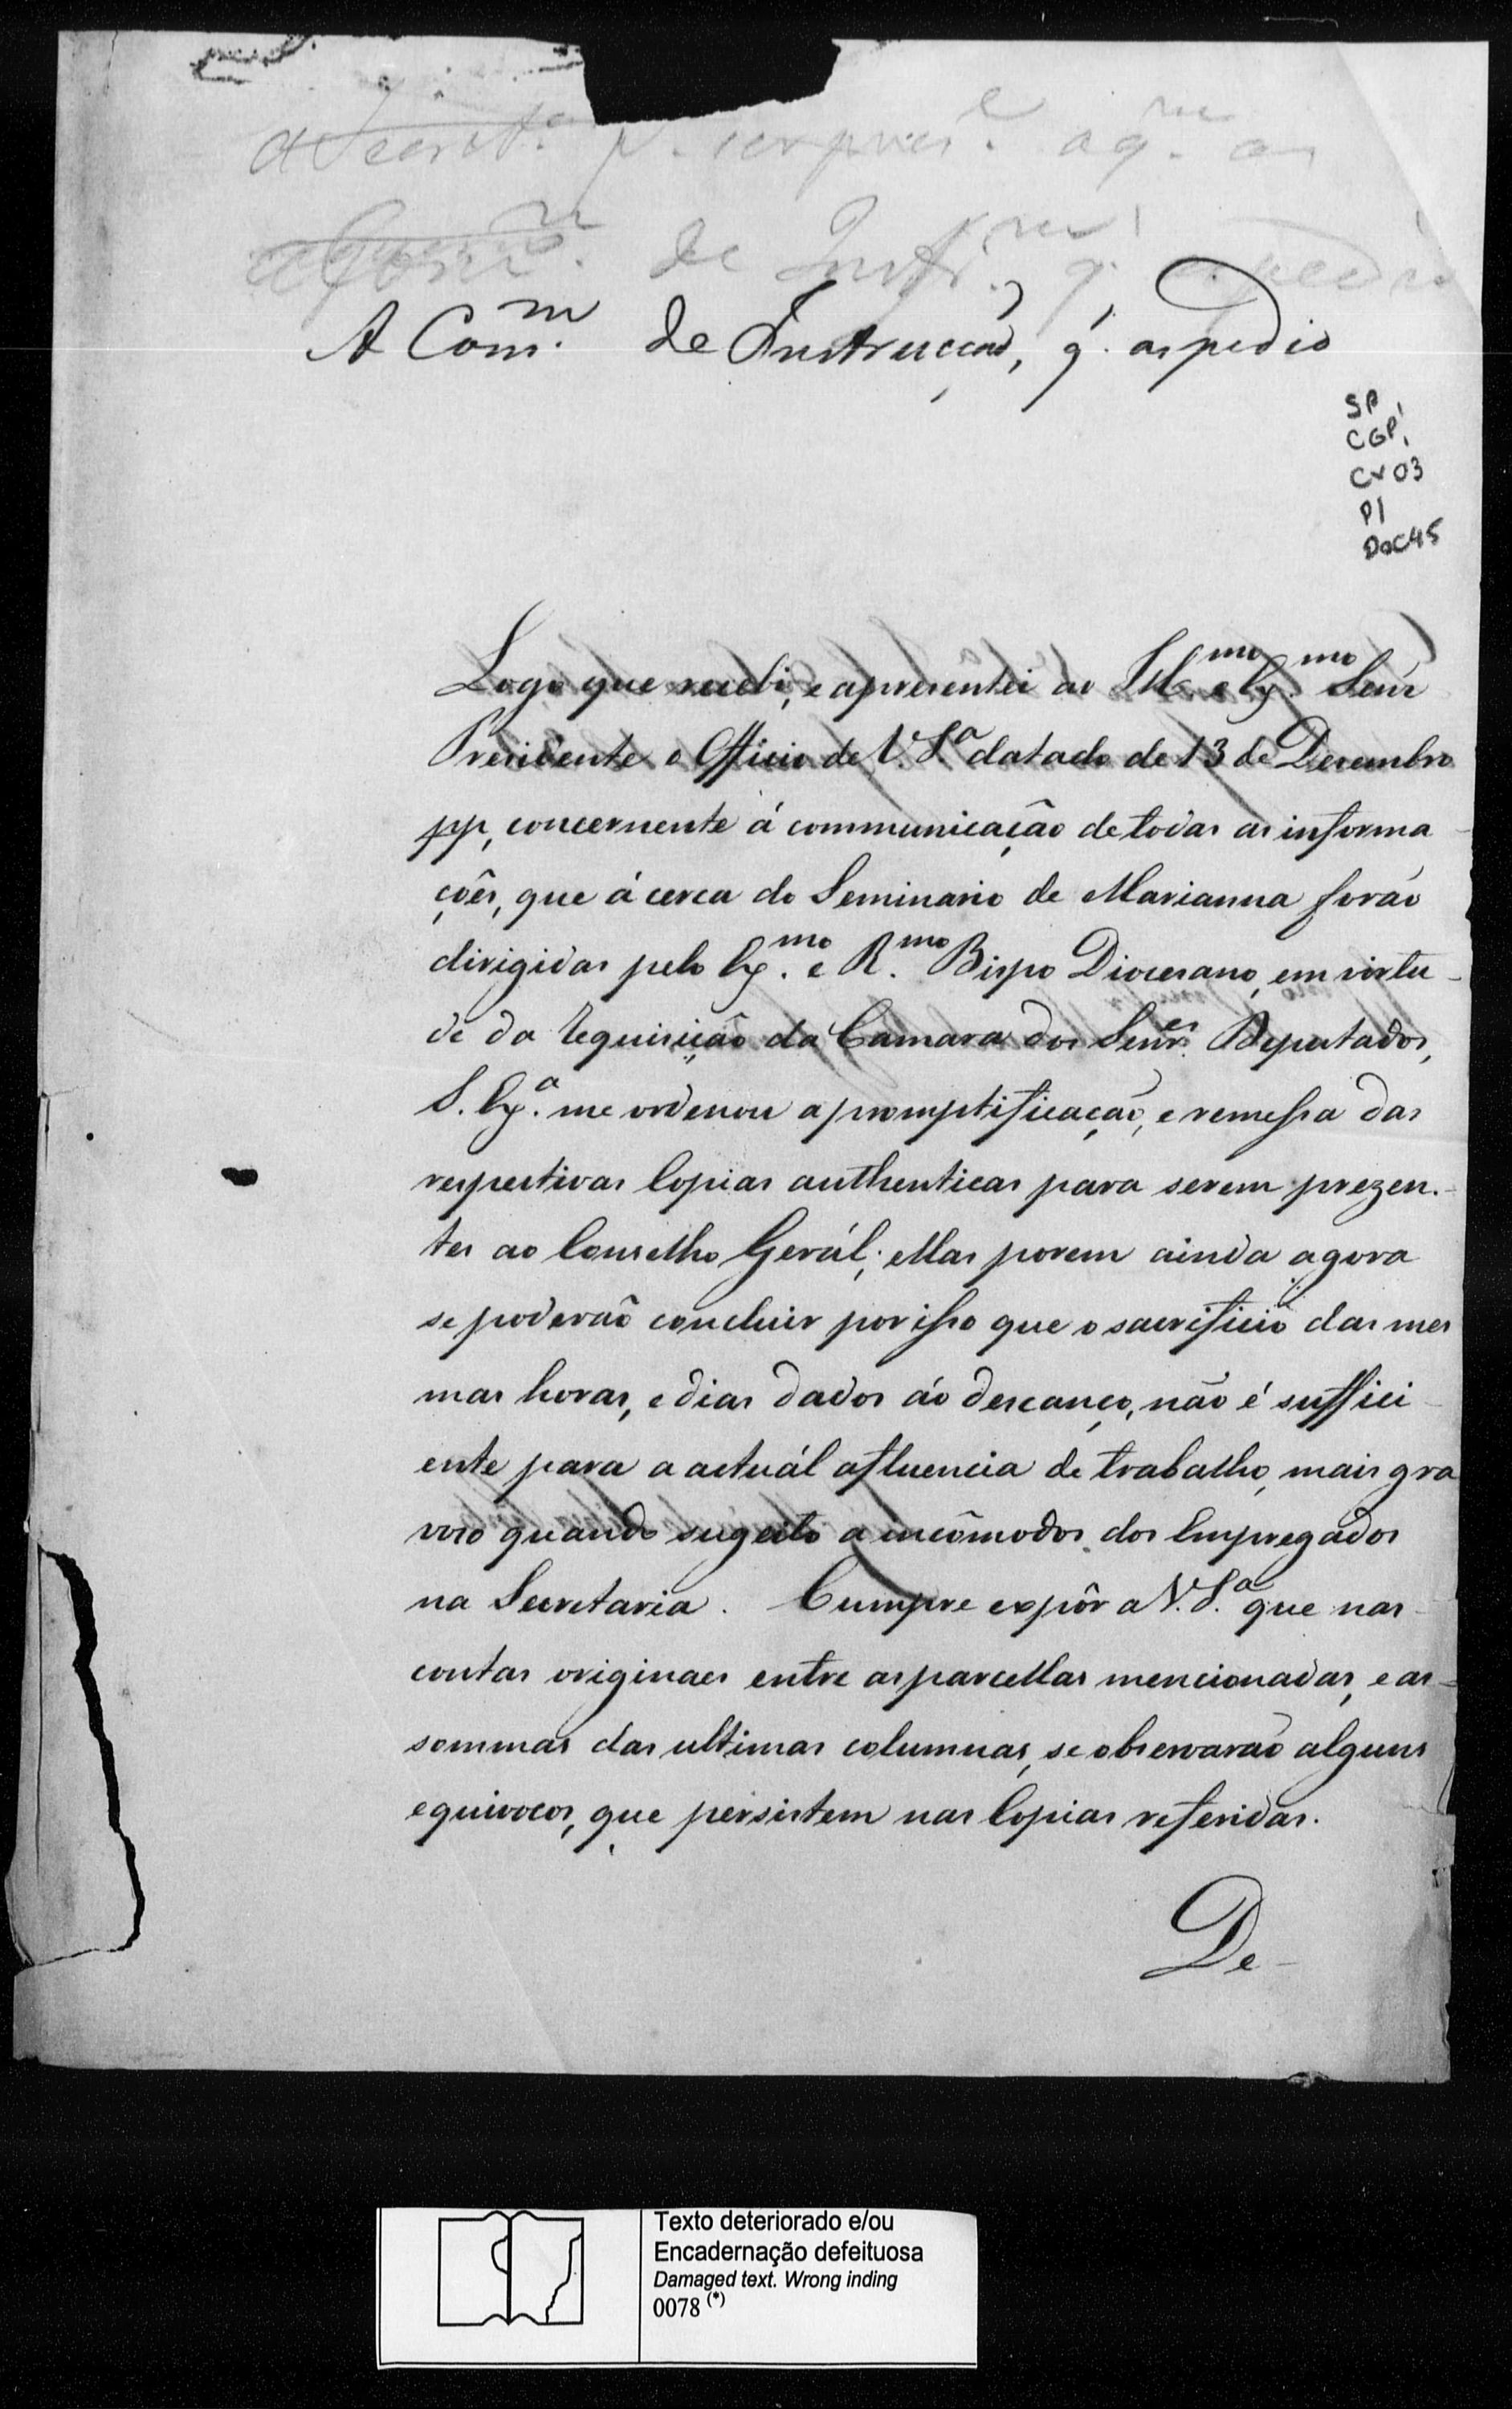 de Instr.
A Com.m de Instrucção, q. as pedio
SP
CGP1
Cx 03
P1
Doc45
Logo que recebi, e apresentei ao Ill.mo e Ex.mo Senr
Presidente o Officio de V. S.a datado de 13 de Dezembro
pp, concernente á communicação de todas as informa
ções, que ácerca do Seminario de Marianna forão
dirigidas pelo Ex.mo e R.mo Bispo Diocesano, em virtu-
de da requisição da Camara dos Senr.es Deputados,
S. Ex.a me ordenou a promptificação, e remessa das
respectivas Copias authenticas para serem prezen-
tes ao Conselho Gerál; ellas porem ainda agora
se poderão concluir por isso que o sacrificio das mes
mas horas, e dias dados áo descanço, não é suffici-
ente para a actuál afluencia de trabalho, mais gra
voso quando sugeito a incômodos dos Empregados
na Secretaria. Cumpre expôr a V. S.a que nas
contas originaes entre as parcellas mencionadas, e as
sommas das ultimas columnas, se observarão alguns
equivocos, que persistem nas Copias referidas.
De-
Texto deteriorado e/ou
Encadernação defeituosa
Damaged text. Wrong inding
0078 (*)